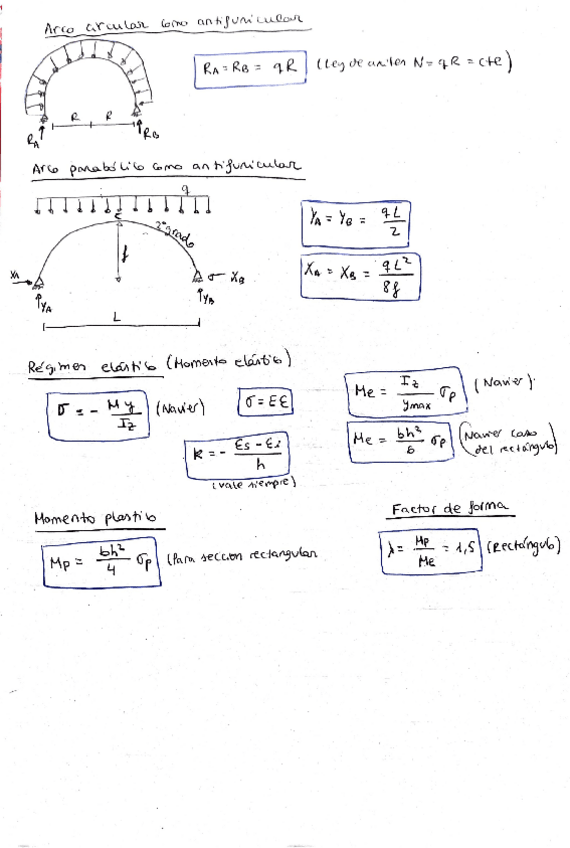 Arco circular como antifunicular
RA = RB = qR (Ley de axiles N = qR = cte)
R R
RA RB
Arco parabólico como antifunicular
q
C
2º grado
f
XA XB
YA YB
L
YA = YB = qL/2
XA = XB = qL²/8f
Régimen elástico (Momento elástico)
σ = - My/Iz (Navier)
σ = Eε
Me = Iz/ymax σp (Navier)
K = - (εs - εi)/h
(vale siempre)
Me = bh²/6 σp (Navier caso
del rectángulo)
Momento plástico
Mp = bh²/4 σp (Para sección rectangular
Factor de forma
λ = Mp/Me = 1,5 (Rectángulo)